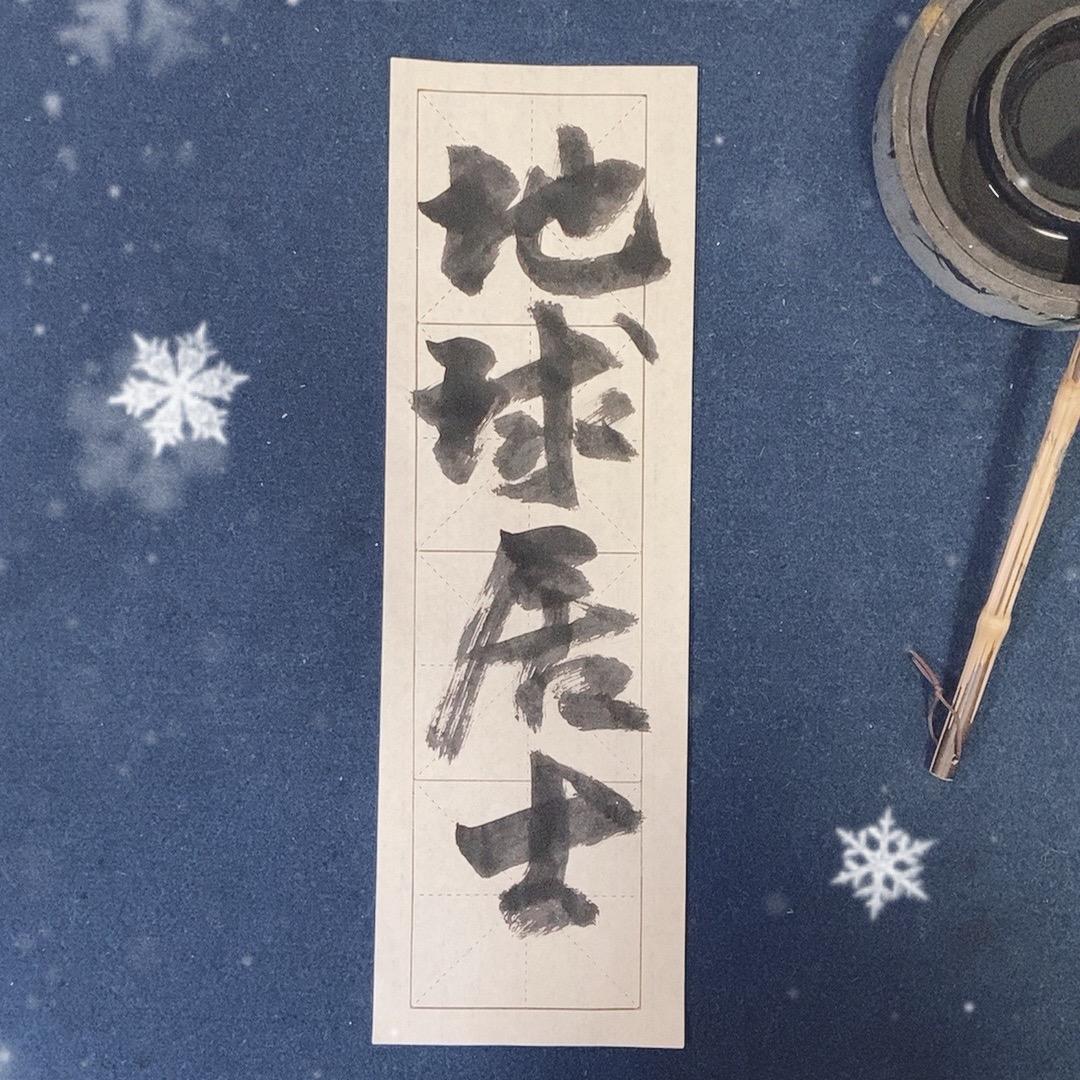 地球居士